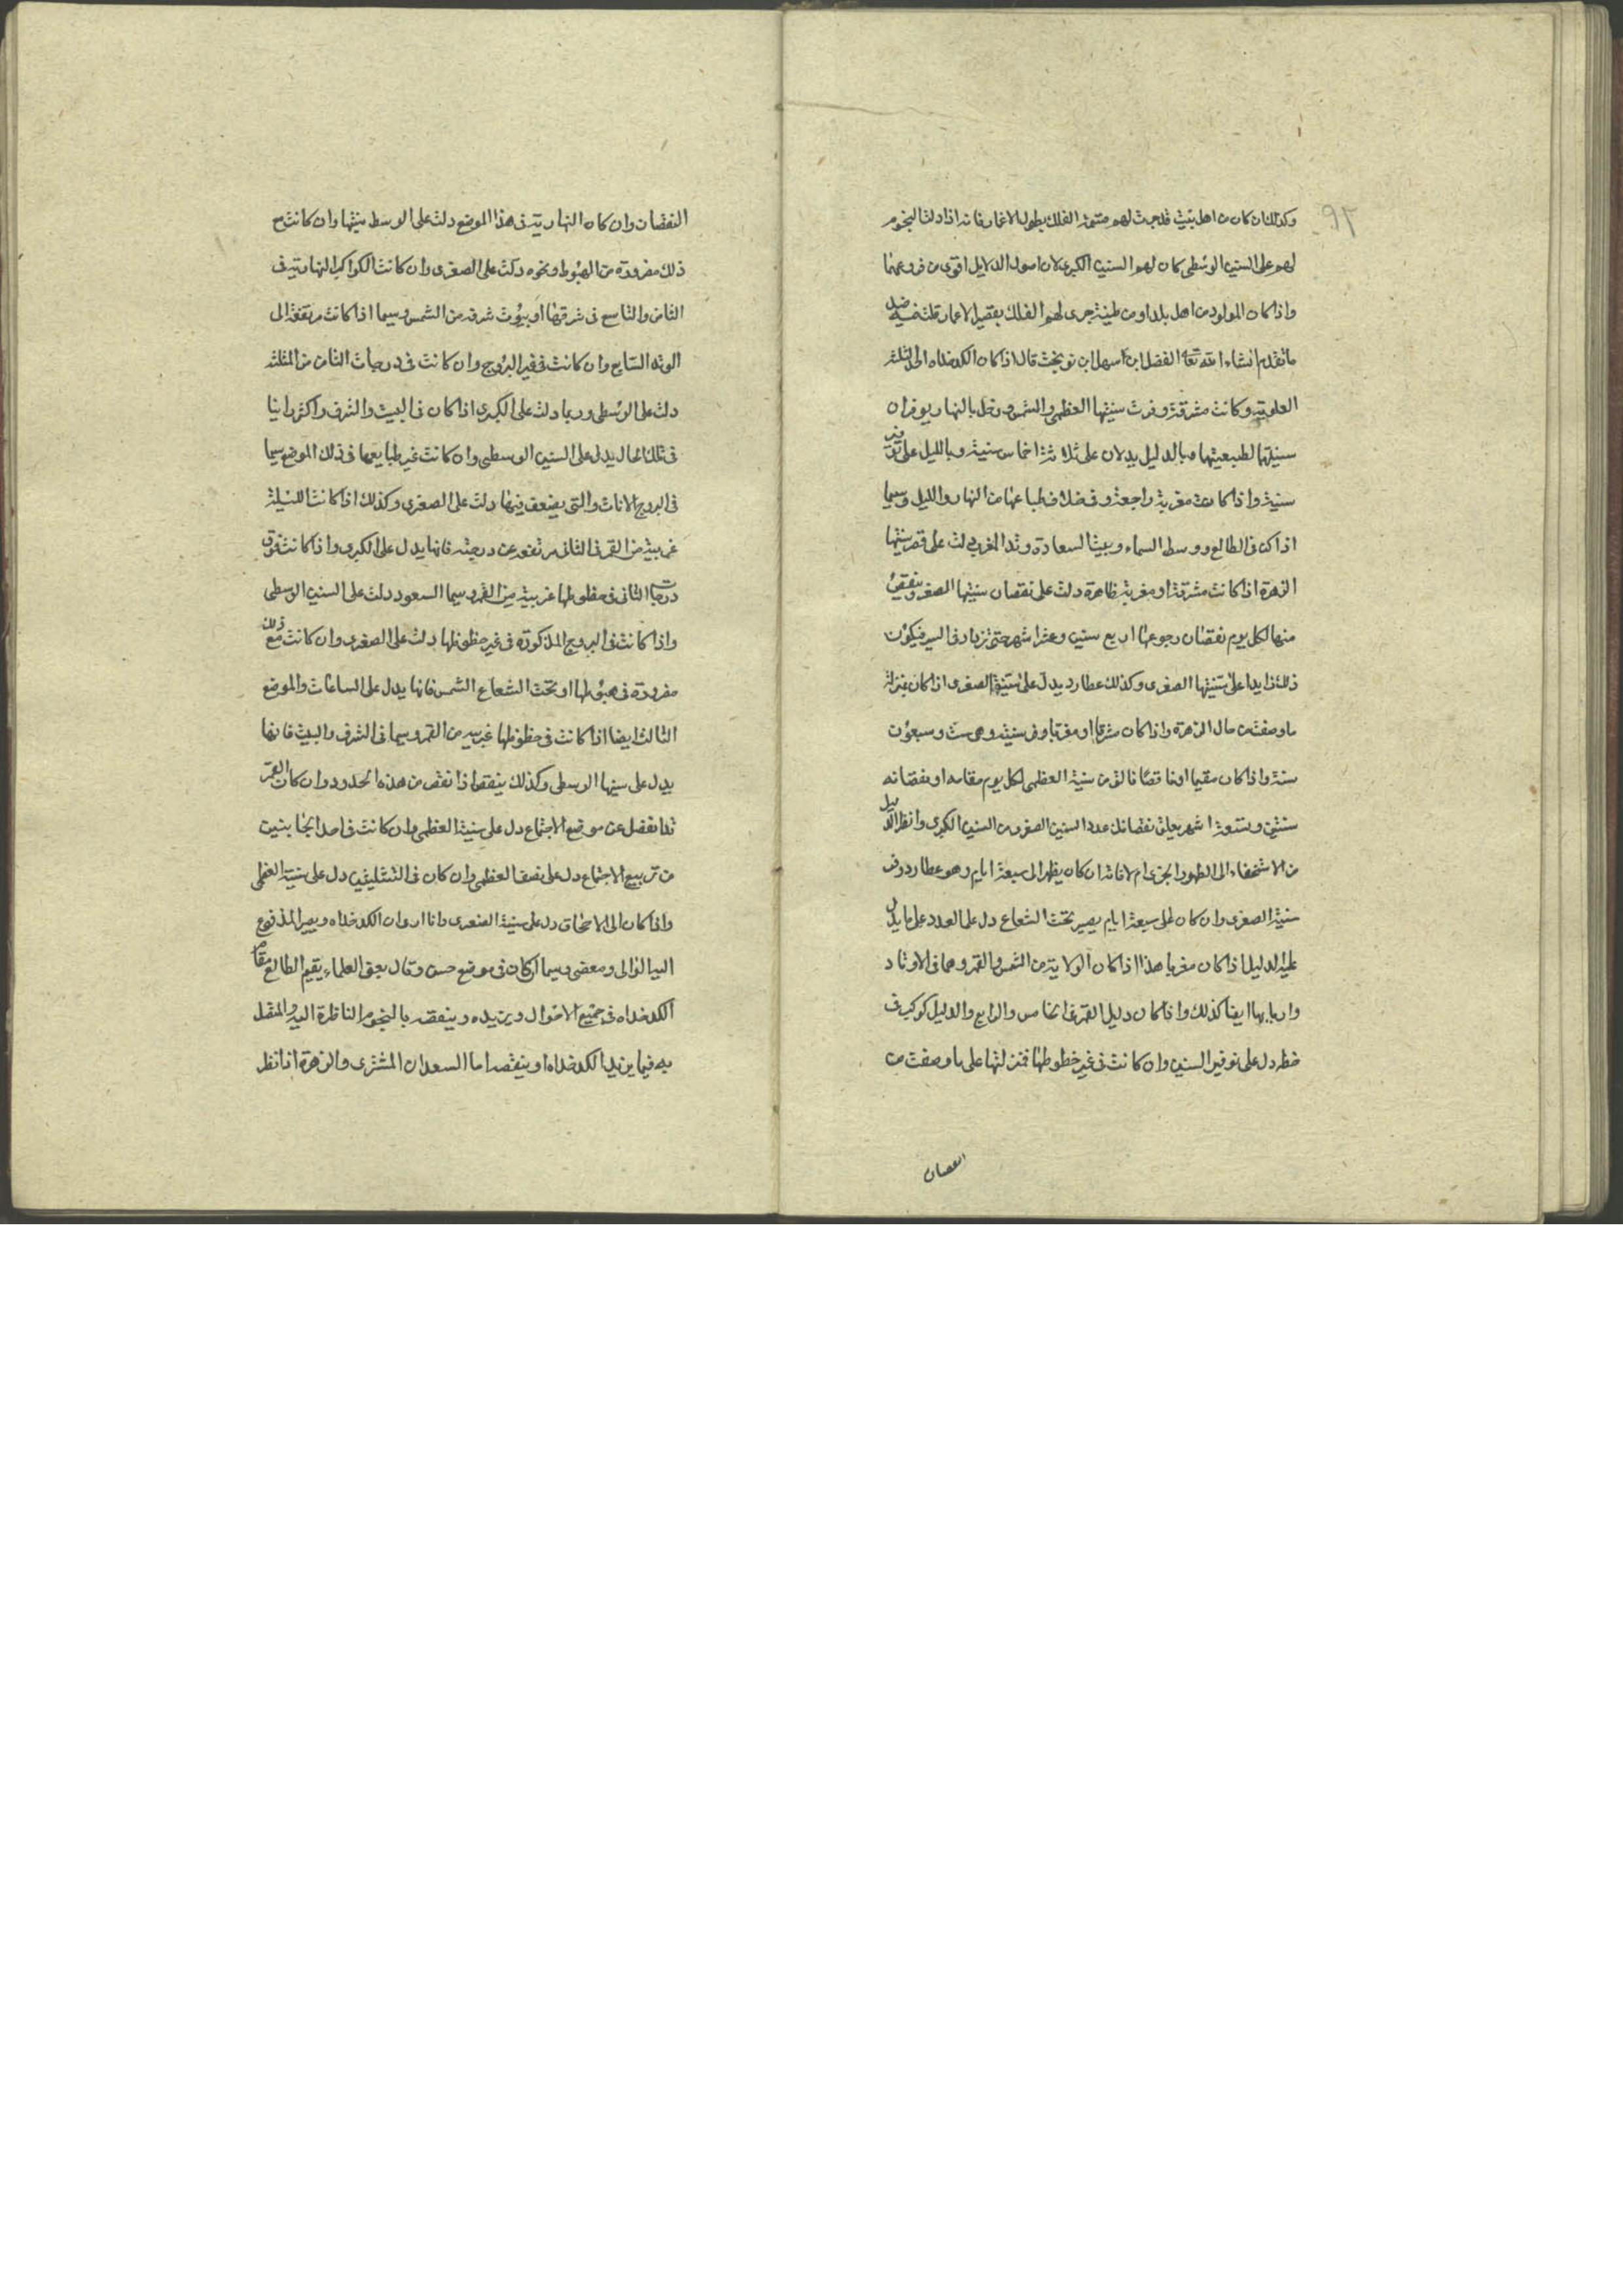 ٩٢
وكذلك ان كان من اهل بيت قد جرت لهم قسمة الفلك بطول الاعمار فانه اذا دلت النجوم
لهم على السنين الوسطى كان لهم السنين الكبرى لان اصول الدلايل اقوى من فروعها
واذا كان المولود من اهل بلد او من طينة جرى لهم الفلك بقصير الاعمار قلت فيه ضد
ما تقدم انشاء الله تعا الفضل ابن سهل ابن نوبخت قال اذا كان الكدخداه احد الثلثة
العلوية وكانت مشرقة وفرت سنيها العظمى والشمس وزحل بالنهار يوفران
سنيهما لطبيعتهما وبالليل يدلان على ثلاثة اخماس سنيه وبالليل على توفير
سنيه واذا كانت مغربة راجعة وفى خلاف طباعها من النهار والليل وسيما
اذا كن فى الطالع ووسط السماء وبيت السعادة وتد المغرب دلت على قصر سنيها
الزهرة اذا كانت مشرقة او مغربة ظاهرة دلت على نقصان سنيها الصغر وينقص
منها لكل يوم نقصان رجوعها اربع سنين وعشر اشهر حتى تزداد فى السير فيكون
ذلك زايدا على سنيها الصغرى وكذلك عطارد يدل على سنيه الصغرى اذا كان بمنزلة
ما وصفت من حال الزهرة واذا كان مشرقا او مغربا وفر سنيه وهى ست وسبعون
سنة واذا كان مقيما او ناقصا فالق من سنيه العظمى لكل يوم مقامه او نقصانه
سنتين وتسعة اشهر يعلق نقصانك عدد السنين الصغر من السنين الكبرى وانظر الدليل
من الاستخفاء الى الظهور يجرى ام لا فانه ان كان يظهر الى سبعة ايام وهو عطارد وفر
سنيه الصغرى وان كان على سبعة ايام يصير تحت الشعاع دل على العدد على ما يدل
عليه الدليل اذا كان مغربا هذا اذا كان الولاية من الشمس والقمر وهما فى الاوتاد
واربابها ايضا كذلك واذا كان دليل القمر فى الخامس والرابع والدليل كوكب فى
حظه دل على توفير السنين وان كانت فى غير حظوظها فمنزلتها على ما وصفت من
النقصان
النقصان وان كان النهارية فى هذا الموضع دلت على الوسط سنيها وان كانت مع
ذلك مفرودة من الهبوط ونحوه دلت على الصغرى وان كانت الكواكب النهارية فى
الثامن والتاسع فى شرقها او بيوت شرفه من الشمس وسيما اذا كانت مرتفعة الى
الوتد السابع وان كانت فى فقير البروج وان كانت فى درجات الثامن من المثلثه
دلت على الوسطى وربما دلت على الكبرى اذا كان فى البيت والشرف واكثر راينا
فى تلك الحال يدل على السنين الوسطى وان كانت غير طبايعها فى ذلك الموضع سيما
فى البروج الاناث والتى يضعف فيها دلت على الصغرى وكذلك اذا كانت الليلية
غربية من القمر فى الثانى مرتفعة عن درجته فانها يدل على الكبرى واذا كانت فوق
درجات الثانى فى حظوظها غربية من القمر وسيما السعود دلت على السنين الوسطى
واذا كانت فى البروج المذكورة فى غير حظوظها دلت على الصغرى وان كانت مع ذلك
مفرودة فى هبوطها او تحت الشعاع الشمس فانها يدل على الساعات والموضع
الثالث ايضا اذا كانت فى حظوظها غربية من القمر وسيما فى الشرف والبيت فانها
يدل على سنيها الوسطى وكذلك ينقص اذا نقص من هذه الحدود وان كان القمر
قد انفصل عن موضع الاجتماع دل على سنيه العظمى وان كانت فى احد الجانبين
من تربيع الاجتماع دل على نصف العظمى وان كان فى التثليثين دل على سنيه العظمى
واذا كان الى الامتحاق دل على سنيه الصغرى واذا اردن الكدخداه ويصير المدفوع
اليه الوالى ومعضى وسيما ان كان فى موضع حسن وقال بعض العلماء يقيم الطالع مقام
الكدخداه فى جميع الاحوال ويزيده وينقصه بالنجوم الناظرة اليه والمتصل
به فيما يزيد الكدخداه او ينقصه اما السعدان المشترى والزهرة اذا نظر